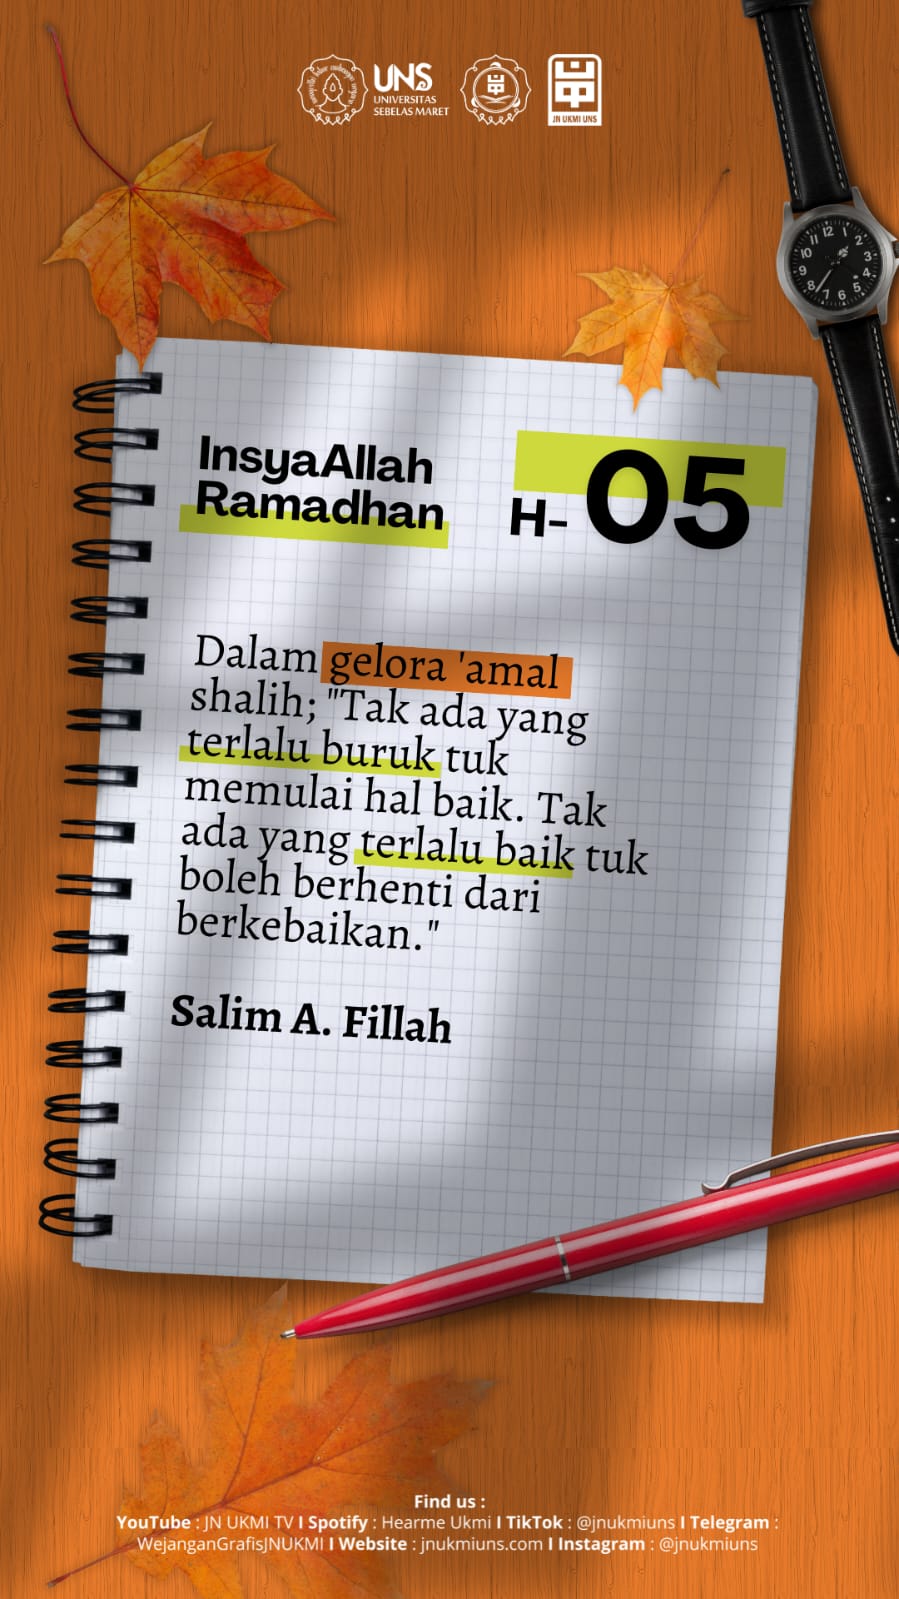 UNS
UNIVERSITAS
SEBELAS MARET
JN UKMI UNS
InsyaAllah
Ramadhan
H- 05
Dalam gelora 'amal
shalih; "Tak ada yang
terlalu buruk tuk
memulai hal baik. Tak
ada yang terlalu baik tuk
boleh berhenti dari
berkebaikan."
Salim A. Fillah
Find us :
YouTube : JN UKMI TV I Spotify : Hearme Ukmi I TikTok : @jnukmiuns I Telegram :
WejanganGrafisJNUKMI I Website : jnukmiuns.com I Instagram : @jnukmiuns